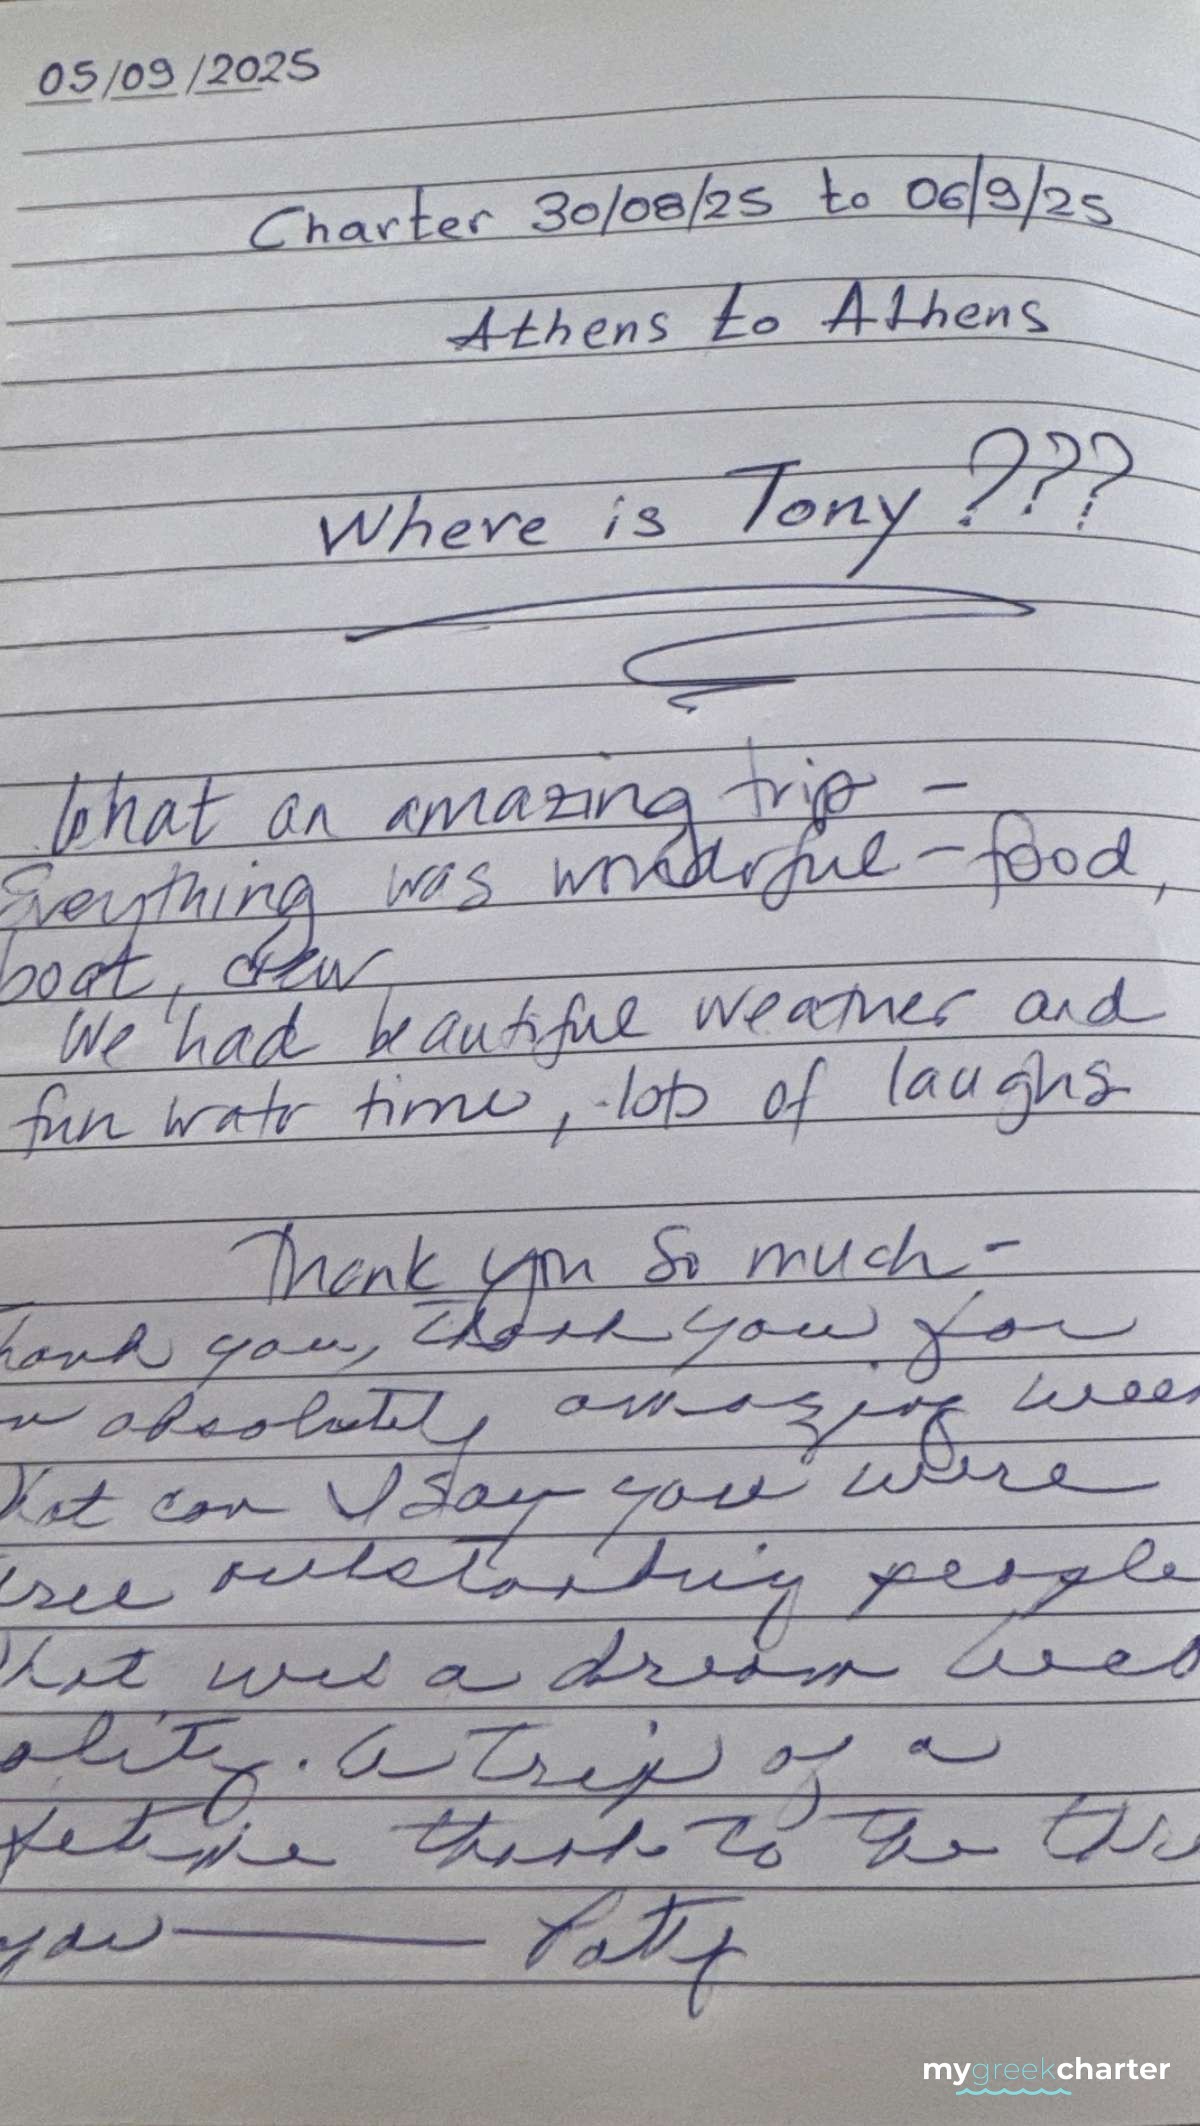 05/09/2025
Charter 30/08/25 to 06/9/25
Athens to Athens
Where is Tony ???
What an amazing trip –
Everything was wonderful – food,
boat, crew
We had beautiful weather and
fun water time, lots of laughs
Thank you so much –
hank you, thank you for
n absolutely amazing wee
hat can I say you were
ree outstanding people
hat was a dream beca
ality. A trip of a
fetime thanks to the thr
you — Patty
mygreekcharter